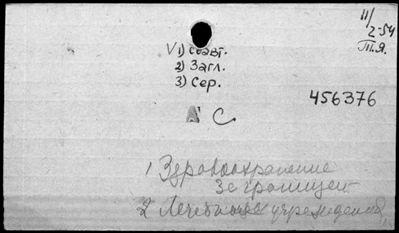 11/2-54
Т.Я.
V 1) Соавт.
2) Загл.
3) Сер.
456376
А С
1 Здравоохранение
за границей
2 Лечебные учреждения